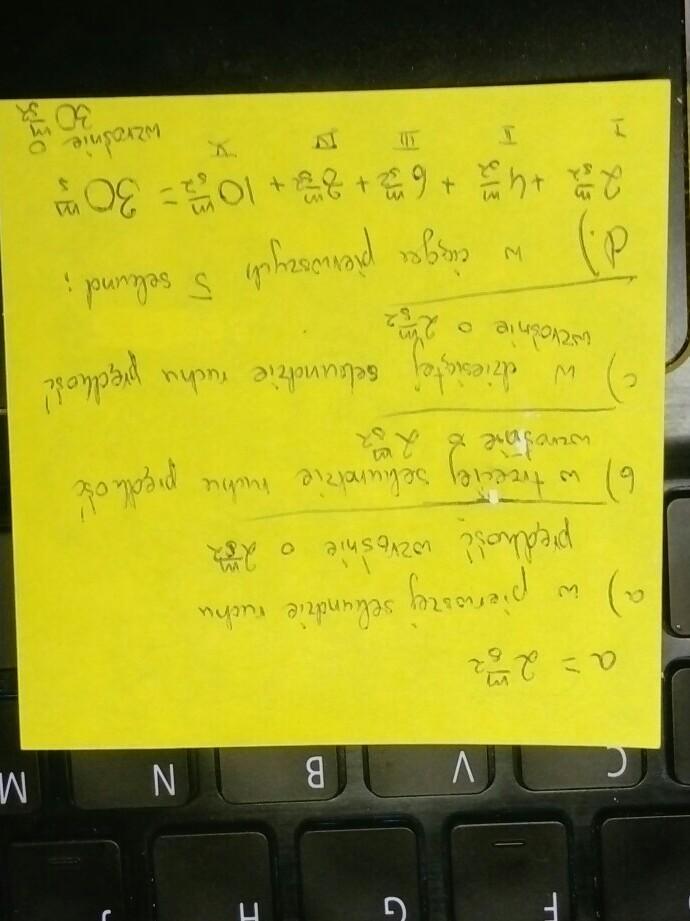 a = 2 m/s²
a) w pierwszej sekundzie ruchu
prędkość wzrośnie o 2 m/s²
b) w trzeciej sekundzie ruchu prędkość
wzrośnie o 2 m/s²
c) w dziesiątej sekundzie ruchu prędkość
wzrośnie o 2 m/s²
d.) w ciągu pierwszych 5 sekund:
2 m/s² + 4 m/s² + 6 m/s² + 8 m/s² + 10 m/s² = 30 m/s
I II III IV V
wzrośnie o
30 m/s²
C V B N M
F G H J